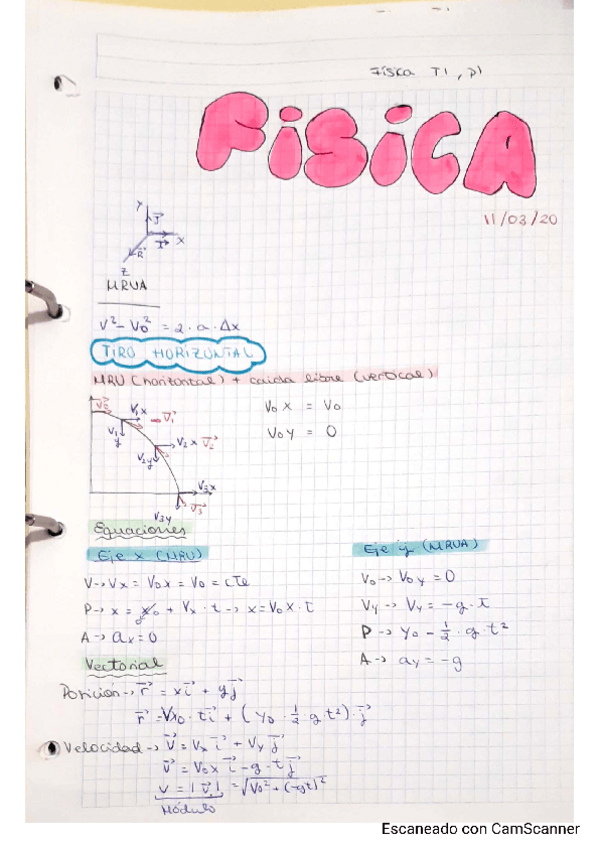 Física T1, p1
FISICA
11/03/20
Y
J
X
I
K
Z
MRUA
V² - V0² = 2 · a · Δx
TIRO HORIZONTAL
MRU (horizontal) + caida libre (vertical)
V0x = V0
V0y = 0
V0
V1x V1
V1y
V2x V2
V2y
V3x
V3
V3y
Equaciones
Eje x (MRU)
Eje y (MRUA)
V → Vx = V0x = V0 = cTe
V0 → V0y = 0
P → x = x0 + Vx · t → x = V0x · t
Vy → Vy = -g · t
A → ax = 0
P → y0 - 1/2 · g · t²
A → ay = -g
Vectorial
Posición → r = xi + yj
r = Vx0 · ti + (y0 · 1/2 g t²) · j
Velocidad → V = Vx i + Vy j
v = V0x i - g · t j
v = |v| = √V0² + (-gt)²
Módulo
Escaneado con CamScanner